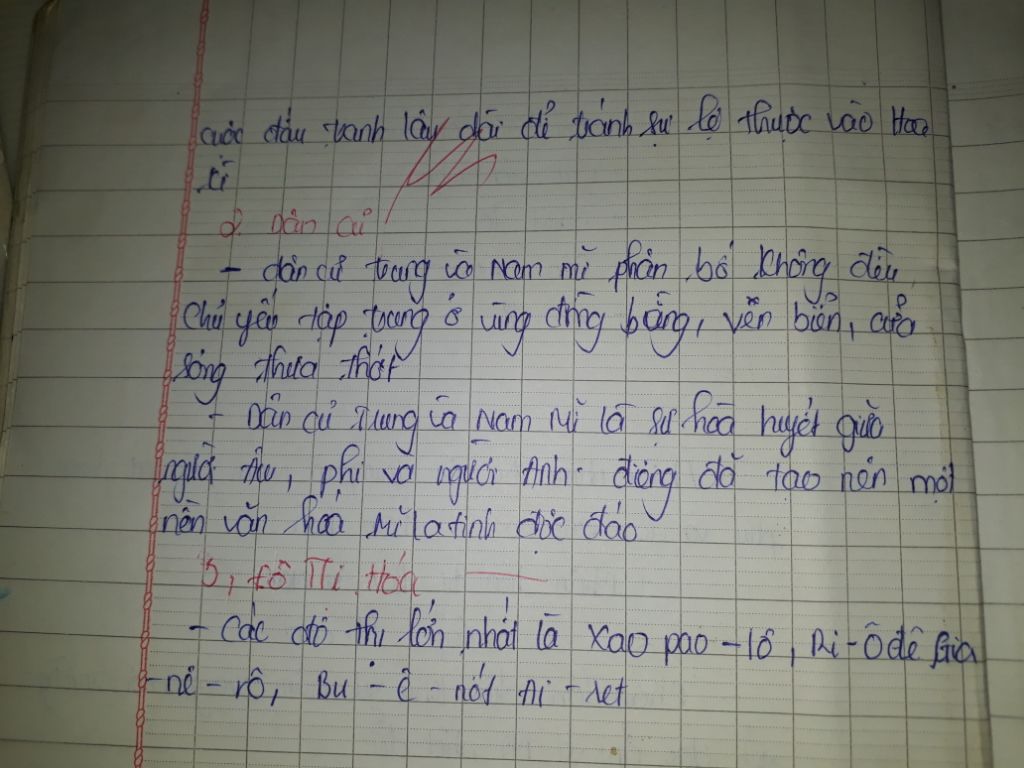 cuộc đấu tranh lâu dài để tránh sự lệ thuộc vào Hoa
kì
2. Dân cư
- dân cư trung và Nam mĩ phân bố không đều
chủ yếu tập trung ở vùng đồng bằng, vên biển, cửa
sông thưa thớt
- Dân cư Trung và Nam Mĩ là sự hoà huyết giữa
người Âu, phi và người Anh- điêng đã tạo nên một
nền văn hoá Mĩ latinh độc đáo
3, Đô Thị Hóa
- các đô thị lớn nhất là Xao pao-lô, Ri-Ô đê Gia
-nê-rô, Bu-ê-nót Ai-ret